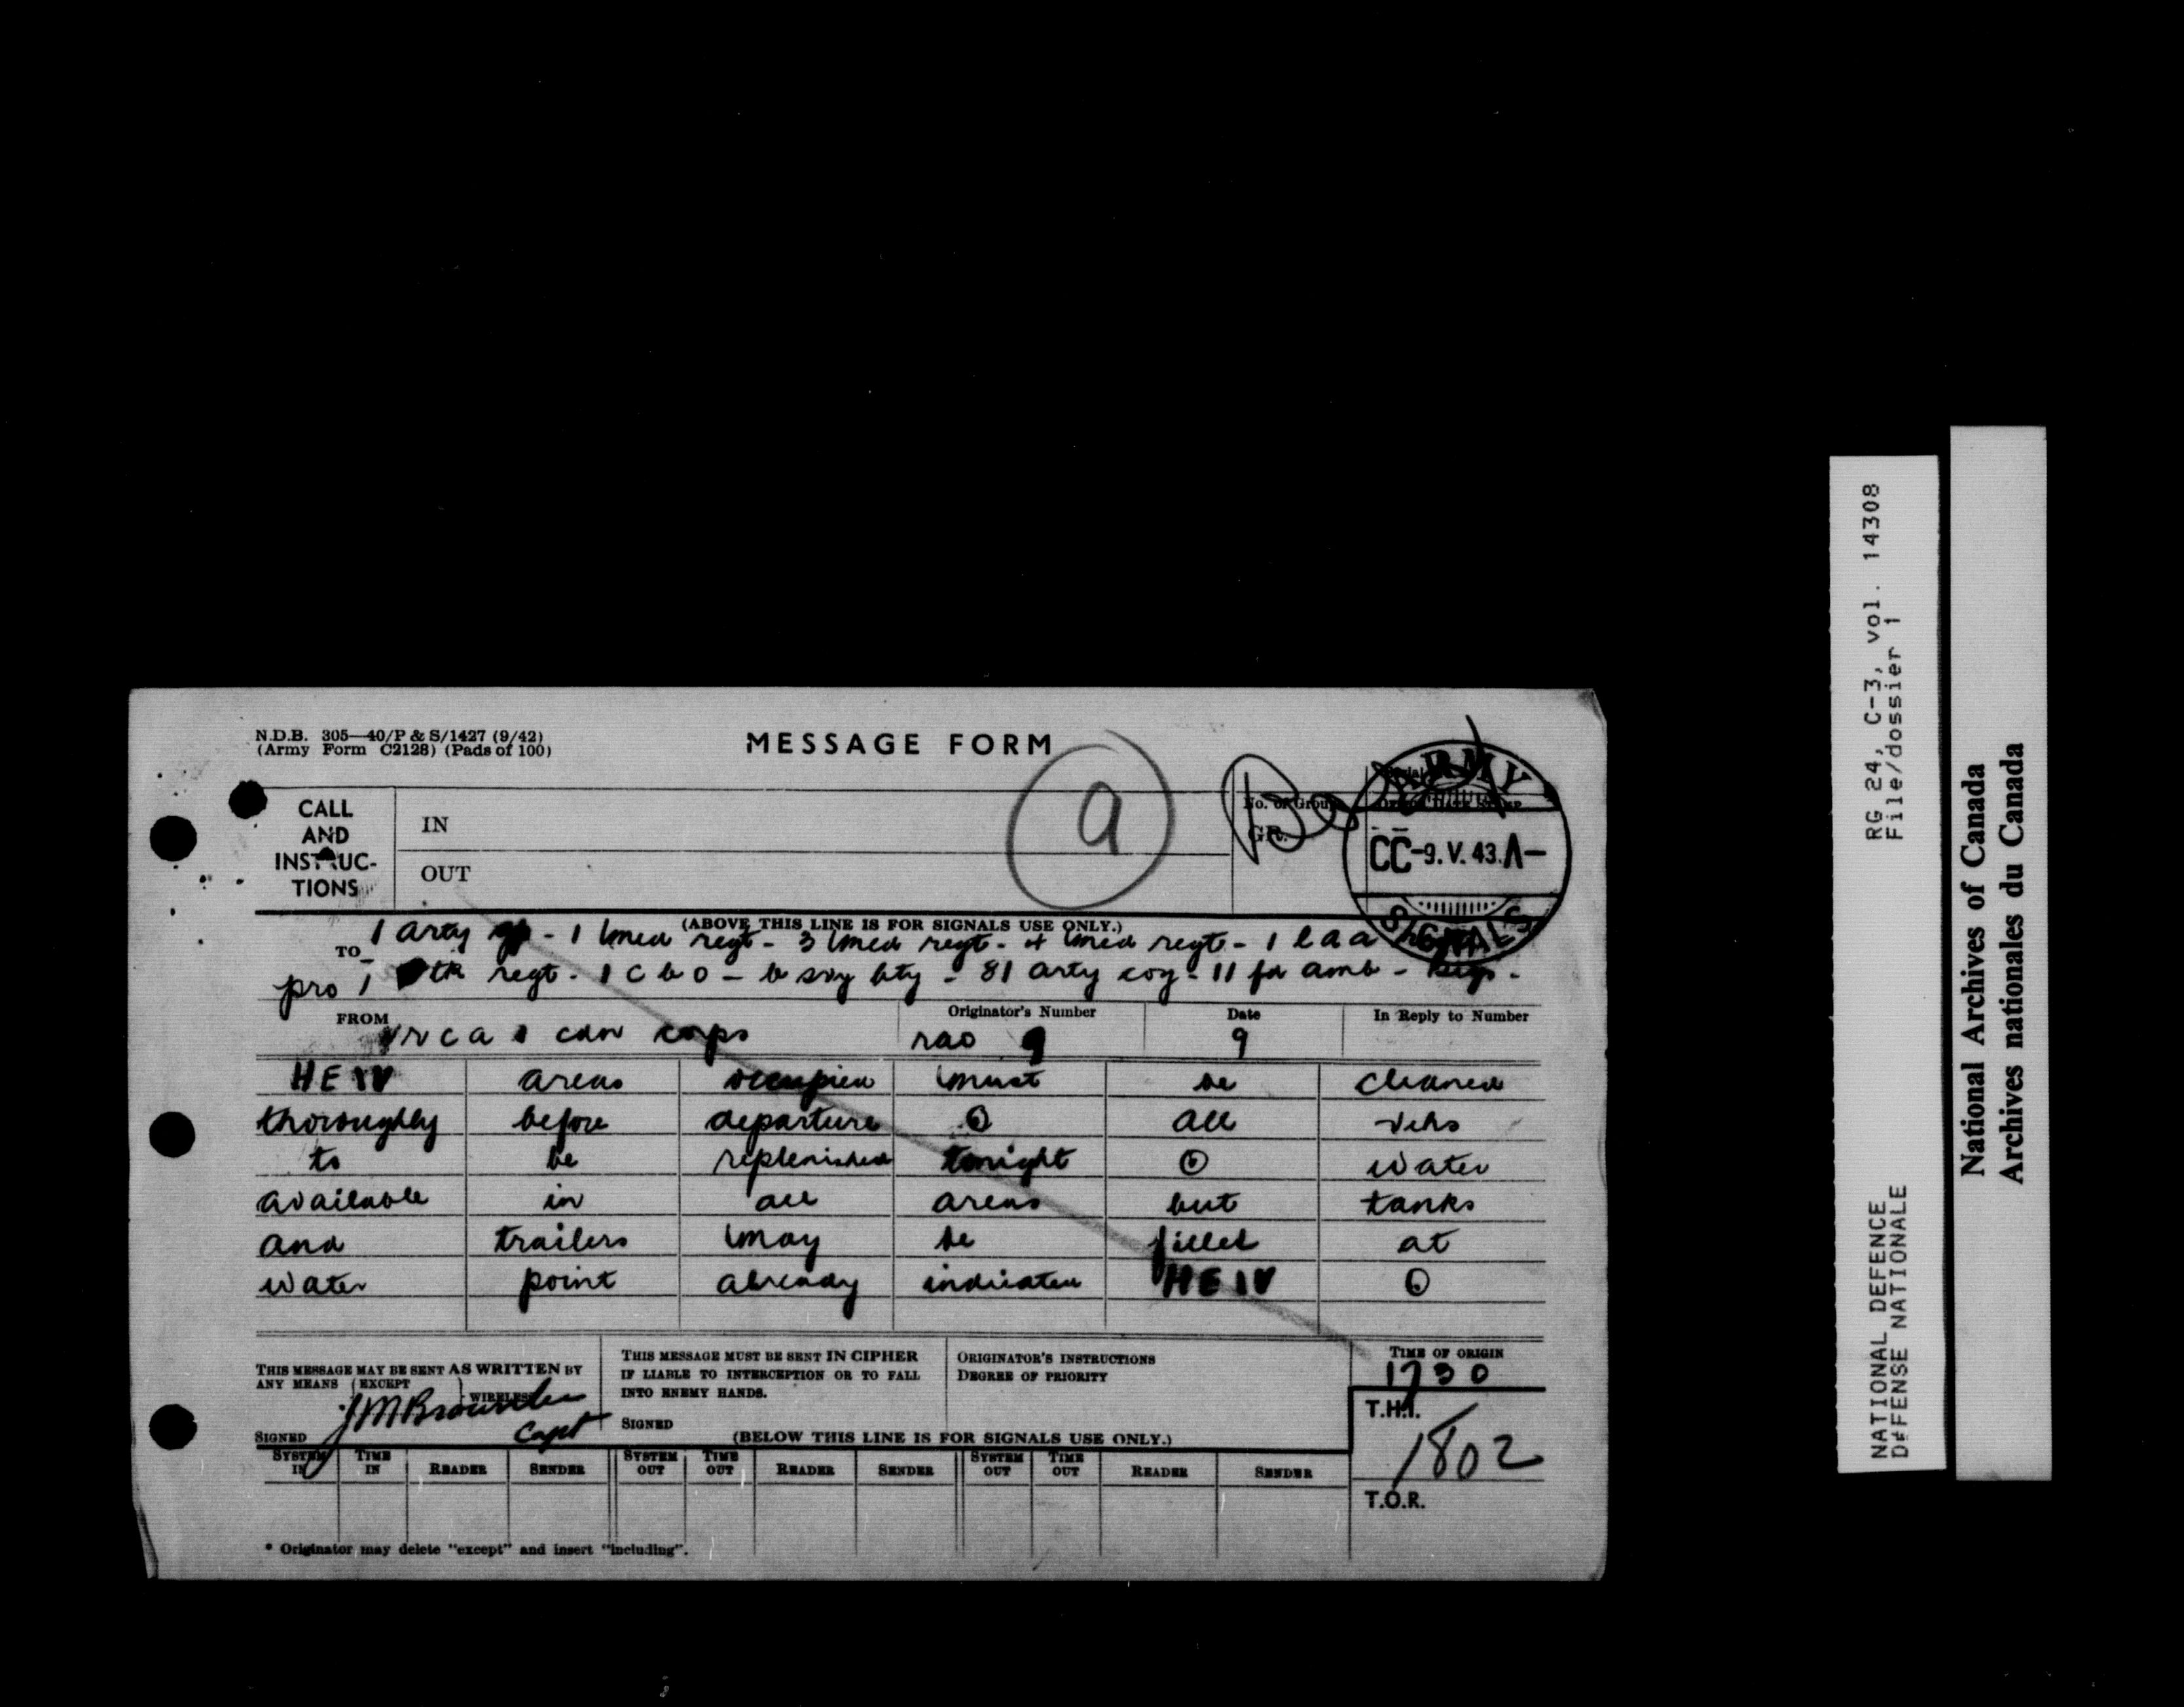 N.D.B. 305—40/P & S/1427 (9/42)
(Army Form C2128) (Pads of 100)
MESSAGE FORM
a
CALL AND INSTRUC-TIONS
IN
OUT
No. of Groups
GR.
ARMY
CC-9.V.43.A-
SIGNALS
(ABOVE THIS LINE IS FOR SIGNALS USE ONLY.)
TO 1 arty gp - 1 med regt - 3 med regt - 4 med regt - 1 laa
pro 1 tk regt - 1 C b o - b svy bty - 81 arty coy - 11 fd amb -
FROM rca 1 cdn corps
Originator's Number rao 9
Date 9
In Reply to Number
HE IV areas occupied must be cleaned
thoroughly before departure ⊙ all vehs
to be replenished tonight ⊙ water
available in all areas but tanks
and trailers may be filled at
water point already indicated HE IV ⊙
THIS MESSAGE MAY BE SENT AS WRITTEN BY
ANY MEANS (EXCEPT) WIRELESS
SIGNED Capt
THIS MESSAGE MUST BE SENT IN CIPHER
IF LIABLE TO INTERCEPTION OR TO FALL
INTO ENEMY HANDS.
SIGNED
ORIGINATOR'S INSTRUCTIONS
DEGREE OF PRIORITY
TIME OF ORIGIN
1730
T.H.I.
1802
T.O.R.
(BELOW THIS LINE IS FOR SIGNALS USE ONLY.)
SYSTEM IN TIME IN READER SENDER SYSTEM OUT TIME OUT READER SENDER SYSTEM OUT TIME OUT READER SENDER
* Originator may delete "except" and insert "including".
NATIONAL DEFENCE RG 24, C-3, vol. 14308
DEFENSE NATIONALE File/dossier 1
National Archives of Canada
Archives nationales du Canada